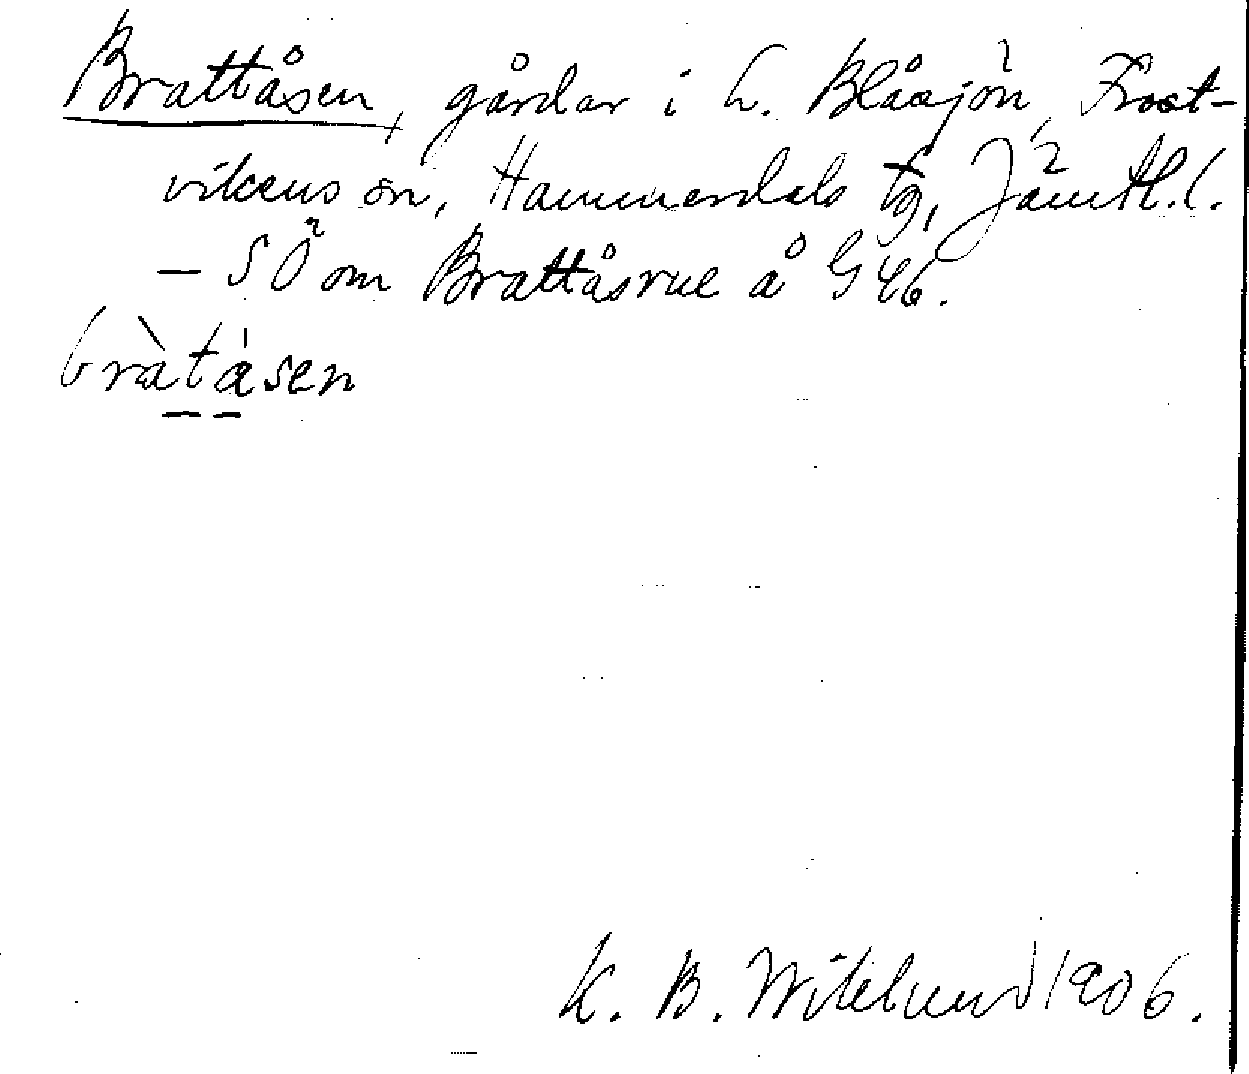 Brattåsen, gårdar i L. Blåsjön, Frost-
vikens sn, Hammerdals tg, Jämtl. l.
— SÖ om Brattåsrue å G 46.
bràtåsen
K. B. Wiklund 1906.